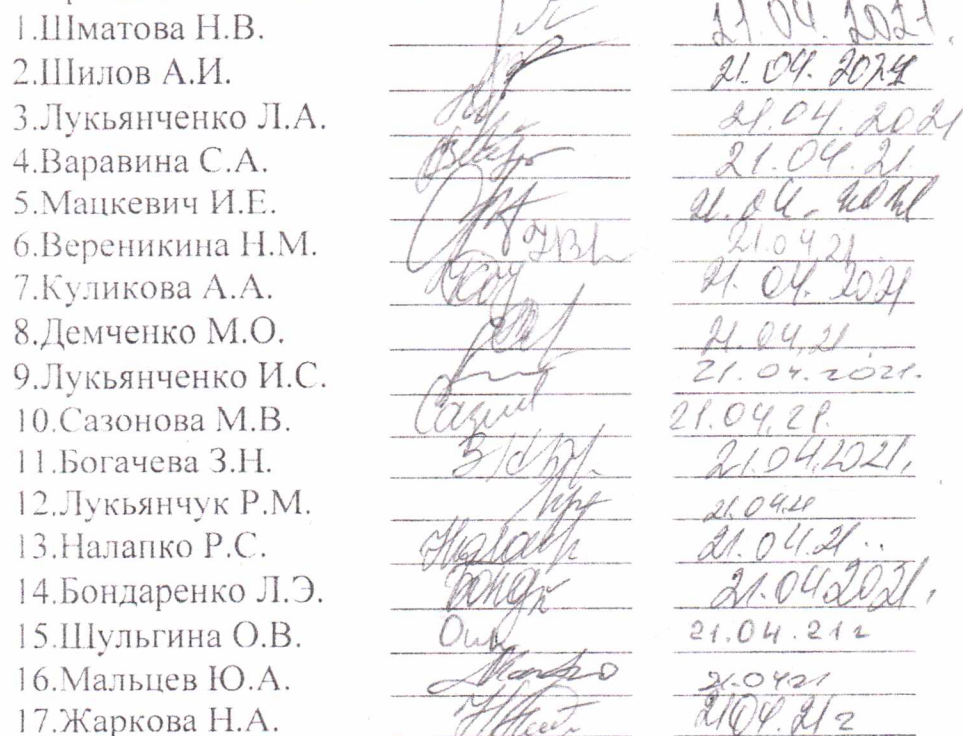 1.Шматова Н.В. 21.04.2021.
2.Шилов А.И. 21.04.2021
3.Лукьянченко Л.А. 21.04.2021
4.Варавина С.А. 21.04.21
5.Мацкевич И.Е. 21.04.2021
6.Вереникина Н.М. 21.04.21
7.Куликова А.А. 21.04.2021
8.Демченко М.О. 21.04.21
9.Лукьянченко И.С. 21.04.2021.
10.Сазонова М.В. 21.04.21.
11.Богачева З.Н. 21.04.2021.
12.Лукьянчук Р.М. 21.04.21
13.Налапко Р.С. 21.04.21..
14.Бондаренко Л.Э. 21.04.2021.
15.Шульгина О.В. 21.04.21г
16.Мальцев Ю.А. 21.0421
17.Жаркова Н.А. 21.04.21г